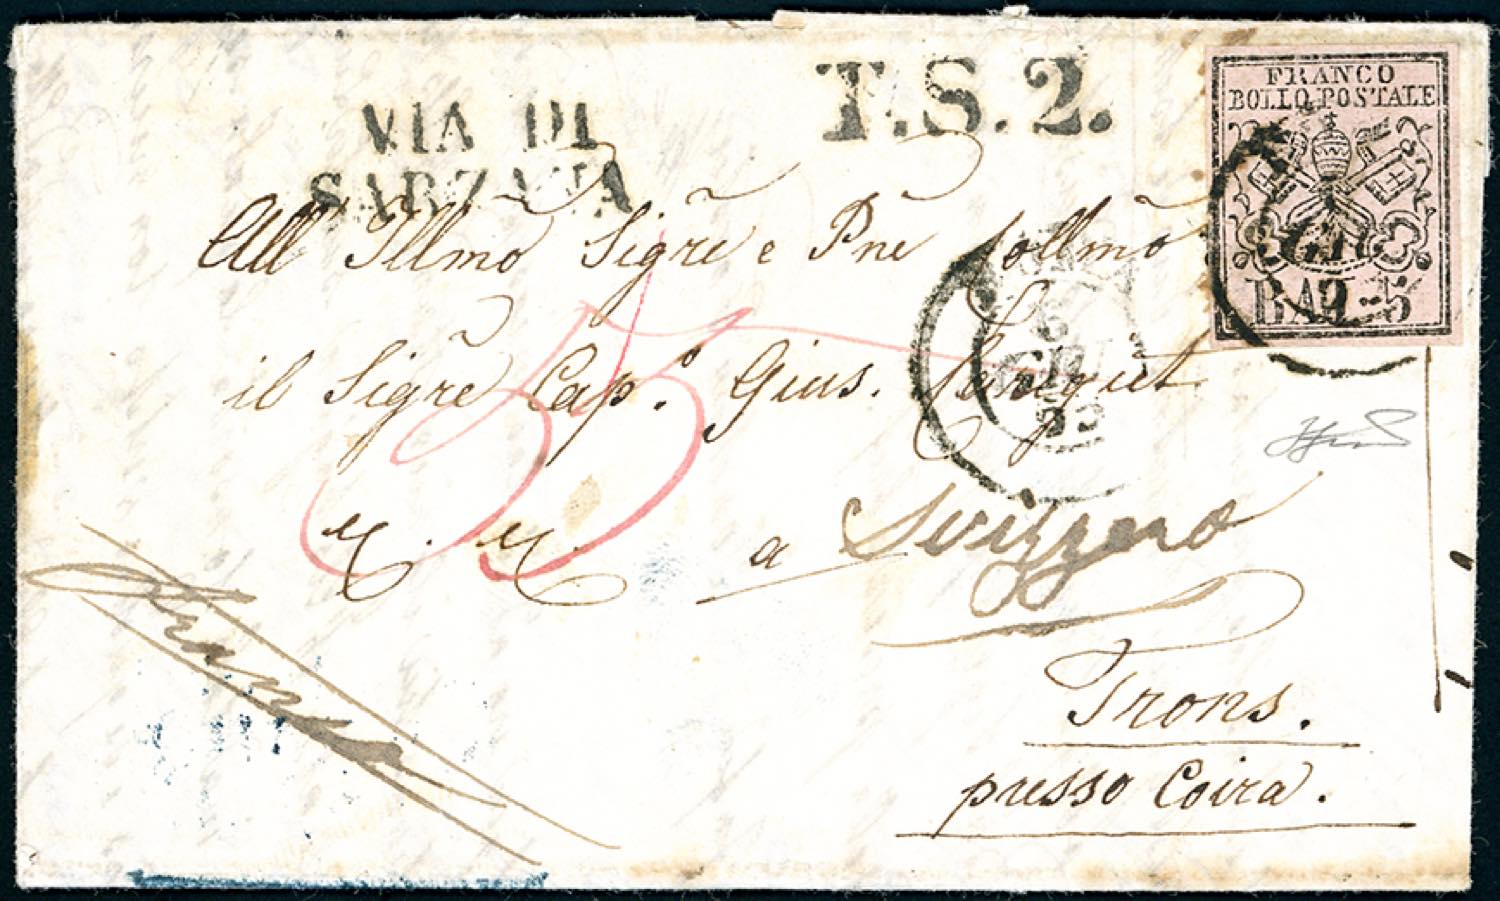 VIA DI
SARZANA
T.S.2.
FRANCO
BOLLO POSTALE
BAJ. 5
All' Illmo Sigre e Pne Collmo
il Sigre Cap.o Gius.
6
GIU
52
a Svizzera
Franca
Trons.
presso Coira.